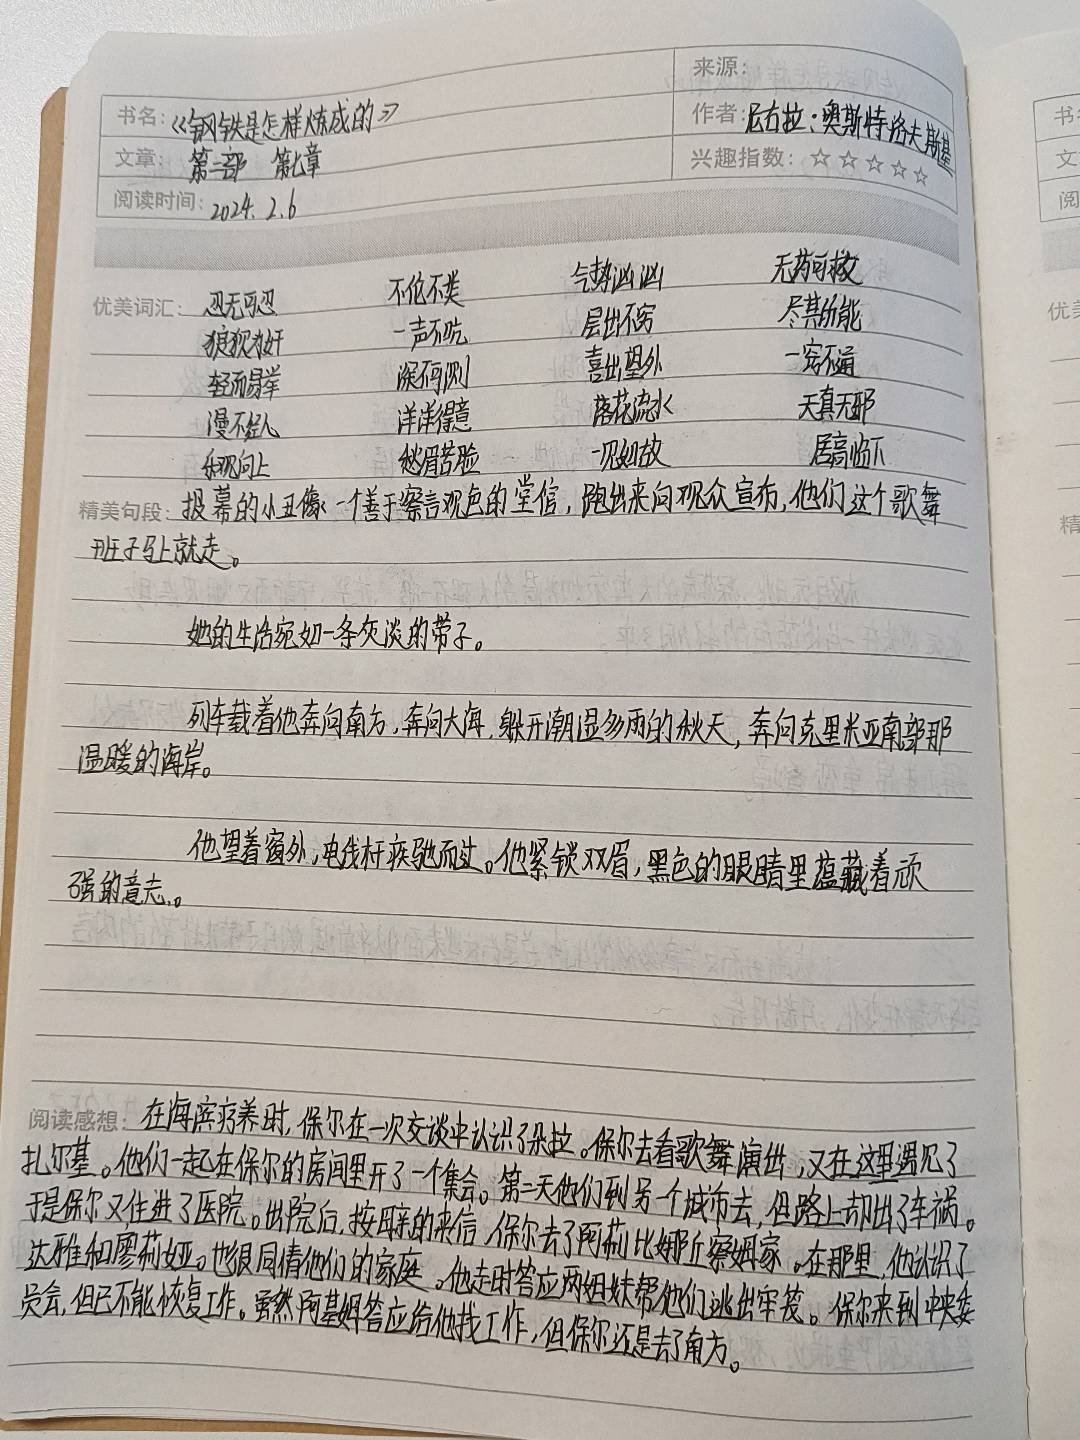 来源:
书名:《钢铁是怎样炼成的》
作者:尼古拉:奥斯特洛夫斯基
文章: 第二部 第七章
兴趣指数: ☆☆☆☆☆
阅读时间: 2024.2.6
优美词汇: 忍无可忍 不伦不类 气势汹汹 无药可救
狼狈为奸 一声不吭 层出不穷 尽其所能
轻而易举 深不可测 喜出望外 一窍不通
漫不经心 洋洋得意 落花流水 天真无邪
乐观向上 愁眉苦脸 一见如故 居高临下
精美句段: 报幕的小丑像一个善于察言观色的堂倌,跑出来向观众宣布,他们这个歌舞
班子马上就走。
她的生活宛如一条灰淡的带子。
列车载着他奔向南方,奔向大海,躲开潮湿多雨的秋天,奔向克里米亚南部那
温暖的海岸。
他望着窗外,电线杆疾驰而过。他紧锁双眉,黑色的眼睛里蕴藏着顽
强的意志。
阅读感想: 在海滨疗养时,保尔在一次交谈中认识了朵拉。保尔去看歌舞演出,又在这里遇见了
扎尔基。他们一起在保尔的房间里开了一个集会。第二天他们到另一个城市去,但路上却出了车祸。
于是保尔又住进了医院。出院后,按母亲的来信,保尔去了阿莉比娜丘察姆家。在那里,他认识了
达雅和廖莉娅。也很同情他们的家庭。他走时答应两姐妹帮他们逃出牢笼。保尔来到中央委
员会,但已不能恢复工作。虽然阿基姆答应给他找工作,但保尔还是去了南方。
书
文
阅
优美
精